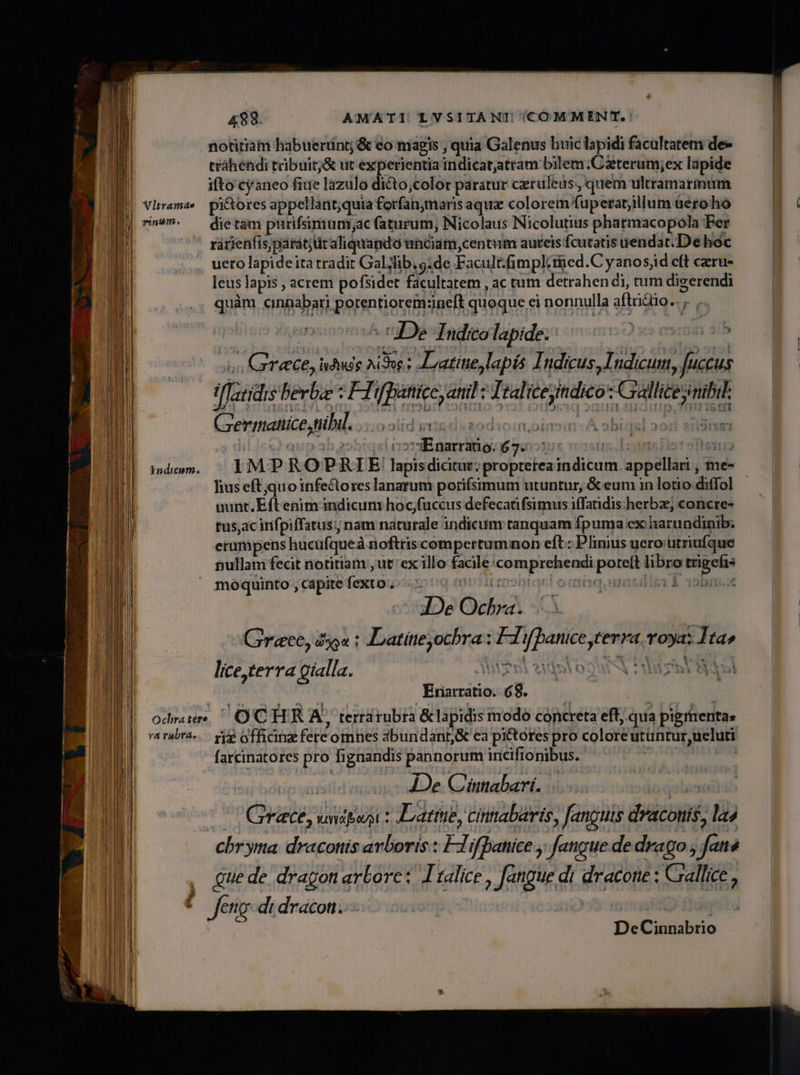 488 AMATI LVSITANI COMMENT.
notitiam habuerunt, & eo magis, quia Galenus huic lapidi facultatem de-
trahendi tribuit, & ut experientia indicat, atram bilem. Cæterum, ex lapide
isto cyaneo siue lazulo dicto, color paratur cæruleus, quem ultramarinum
Vltrama- pictores appellant, quia forsan, maris aquæ colorem superat, illum uero ho
rinum. die tam purissimum, ac saturum, Nicolaus Nicolutius pharmacopola Fer
rariensis, parat, ut aliquando unciam, centum aureis scutatis uendat. De hoc
uero lapide ita tradit Gal. lib. 9. de Facult. simpl. med. Cyanos, id est cæru-
leus lapis, acrem possidet facultatem, ac tum detrahendi, tum digerendi
quàm cinnabari potentiorem: inest quoque ei nonnulla astrictio.
De Indico lapide.
Græce, Latine, lapis Indicus, Indicum, succus
issatidis herbæ: Hispanice, anil: Italice, indico: Gallice, nihil:
Germanice, nihil.
Enarratio. 67.
Indicum. IMPROPRIE lapis dicitur; propterea indicum appellari, me-
lius est, quo infectores lanarum potissimum utuntur, & eum in lotio dissol
uunt. Est enim indicum hoc, succus defecatissimus issatidis herbæ, concre-
tus, ac inspissatus, nam naturale indicum tanquam spuma ex harundinib.
erumpens hucusque à nostris compertum non est: Plinius uero utriusque
nullam fecit notitiam, ut ex illo facile comprehendi potest libro trigesi-
moquinto, capite sexto.
De Ochra.
Græce, ὤχρα: Latine, ochra: Hispanice, terra roya: Ita-
lice, terra gialla.
Enarratio. 68.
Ochra terra OCHRA, terra rubra & lapidis modo concreta est, qua pigmenta-
rubra. riæ officinæ fere omnes abundant, & ea pictores pro colore utuntur, ueluti
farcinatores pro signandis pannorum incisionibus.
De Cinnabari.
Græce, κιννάβαρι: Latine, cinnabaris, sanguis draconis, la-
chryma draconis arboris: Hispanice, sangue de drago, san-
gue de dragon arbore: Italice, sangue di dracone: Gallice,
seng di dracon.
De Cinnabrio